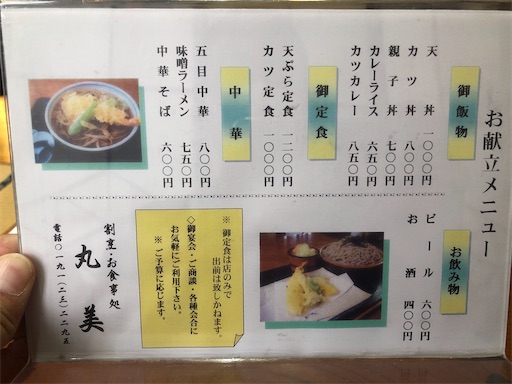 お献立メニュー
御飯物
天丼 一〇〇〇円
カツ丼 八〇〇円
親子丼 七〇〇円
カレーライス 六五〇円
カツカレー 八五〇円
御定食
天ぷら定食 一二〇〇円
カツ定食 一〇〇〇円
中華
五目中華 八〇〇円
味噌ラーメン 七五〇円
中華そば 六〇〇円
お飲み物
ビール 六〇〇円
お酒 四〇〇円
※ 御定食は店のみで
出前は致しかねます。
◇御宴会・ご商談・各種会合に
お気軽にご利用下さい。
※ ご予算に応じます。
割烹・お食事処
丸美
電話〇一九一(二三)二二九五